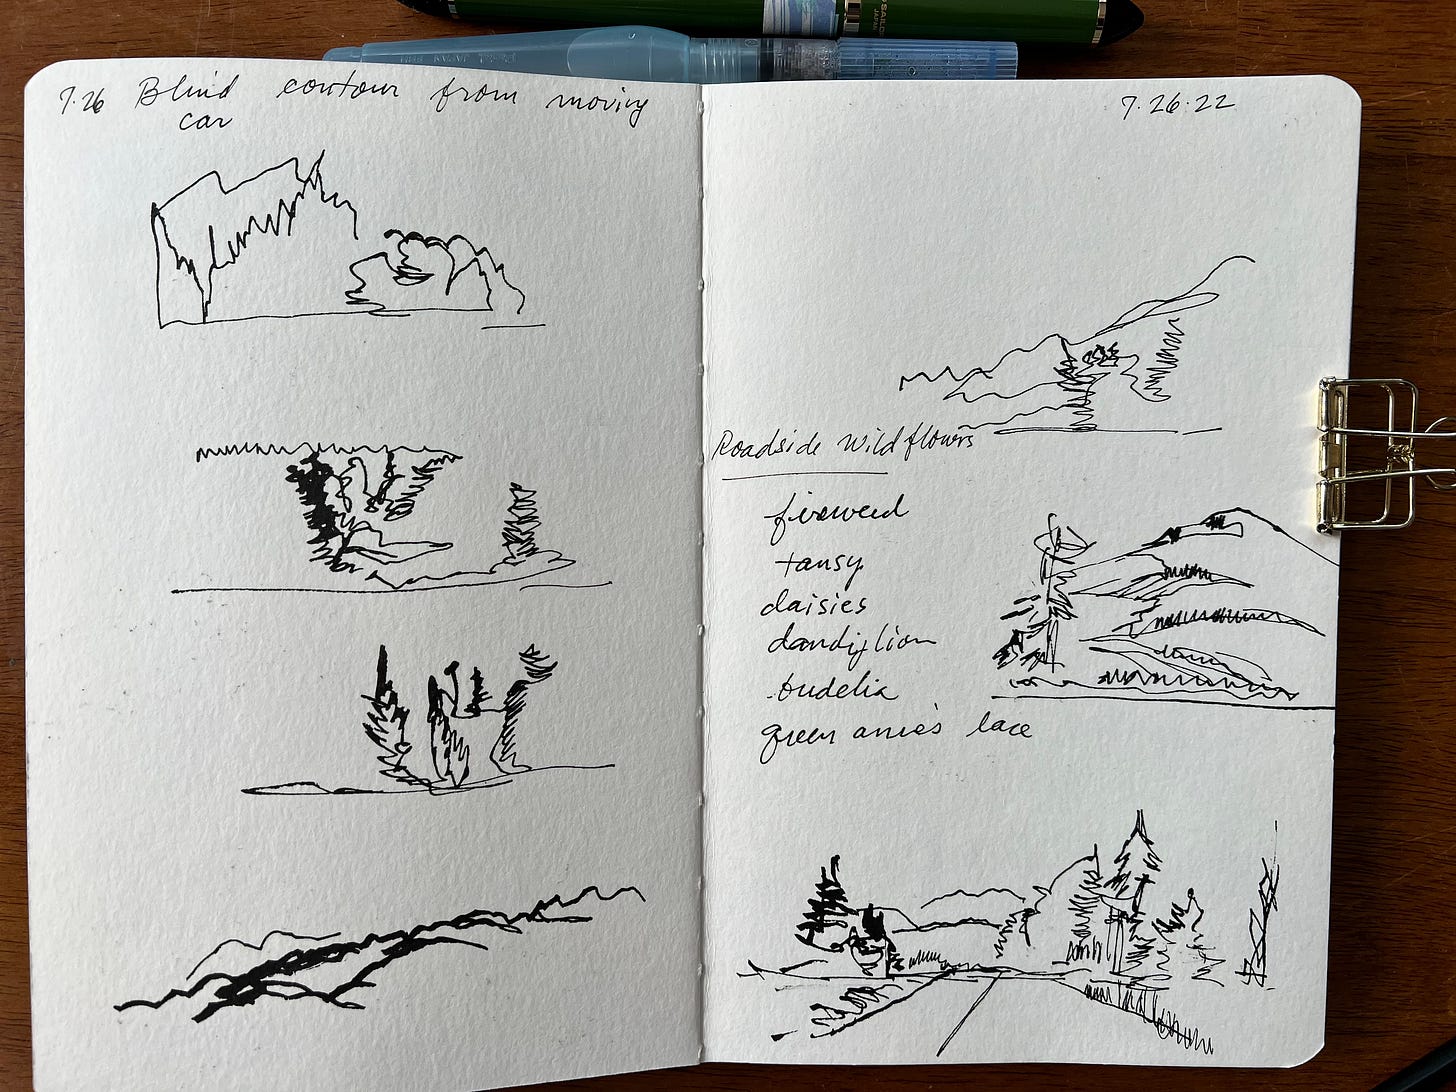 SAILOR
JAPAN
Pentel JAPAN
7.26 Blind contour from moving
car
7.26.22
Roadside Wildflowers
fireweed
tansy
daisies
dandylion
budelia
green annie's lace